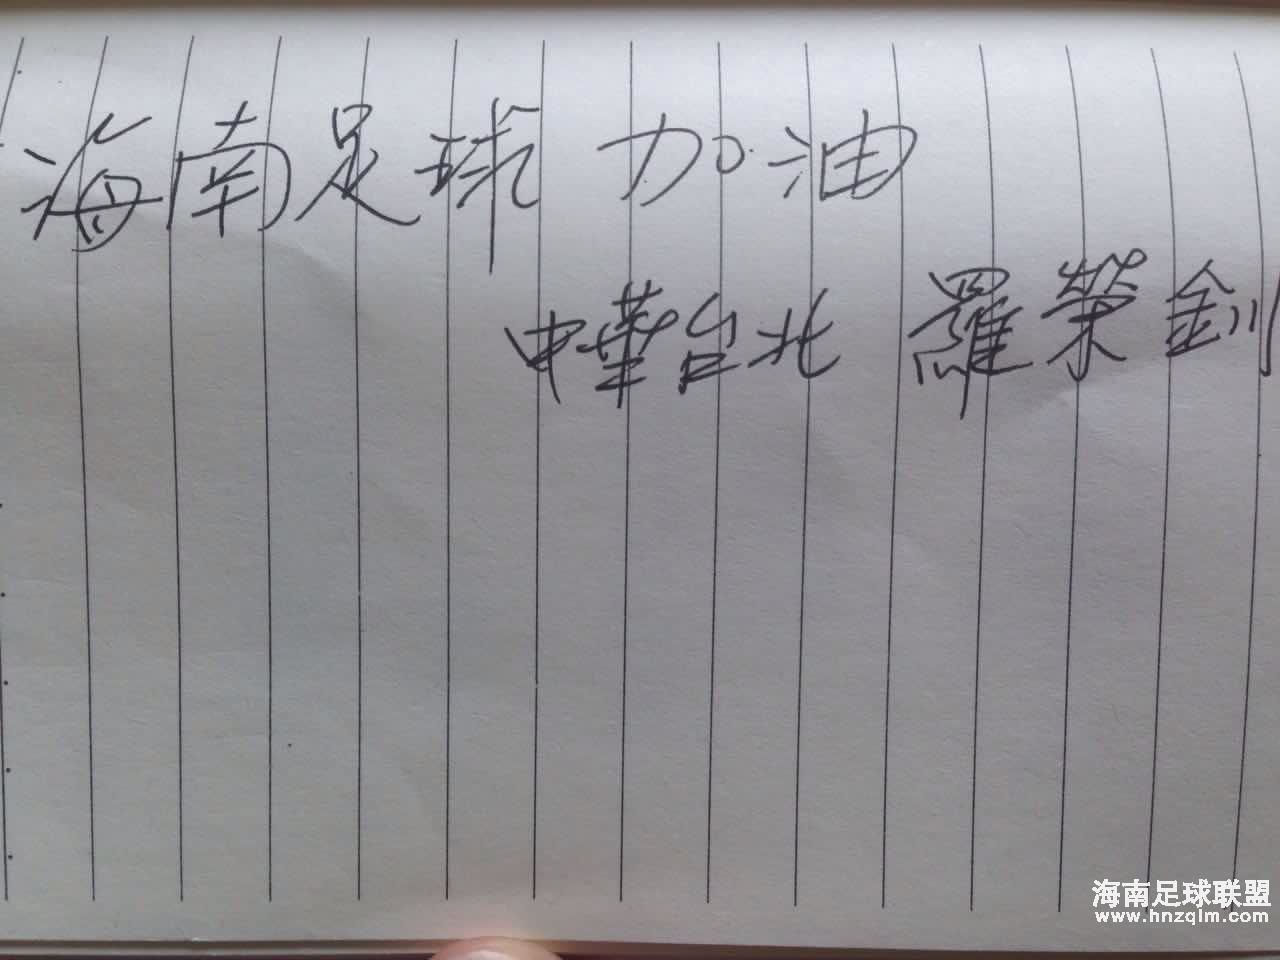 海南足球 加油
中華台北 羅榮釧
海南足球联盟
www.hnzqlm.com